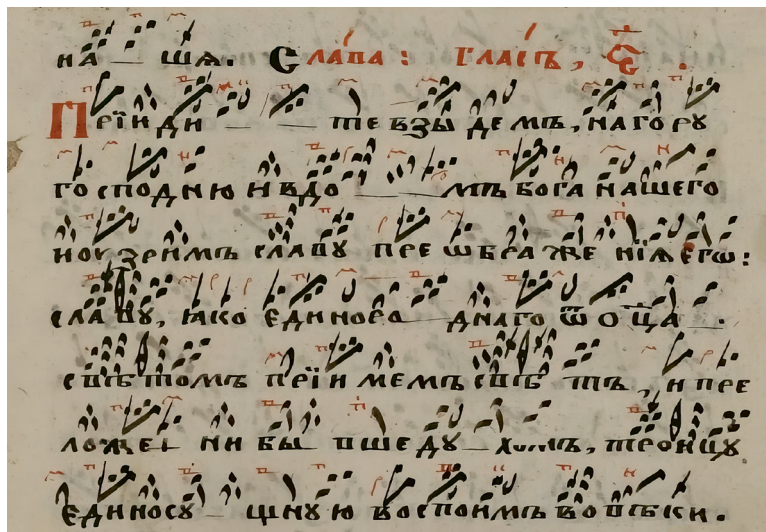 на шя. Слава : Гласъ, Є҃ .
Прїиди те взы демъ, на гору
господню и въ до мъ бога нашего
и оузримъ славу преѡбра же нїѧ єгѡ :
славу, ꙗко єдиноро днаго ѿ ѻц҃а .
свѣтомъ прїимемъ свѣ тъ , и пре
ложе ни бы вше ду хомъ, троицу
єдиносу щную воспоимъ во вѣки .